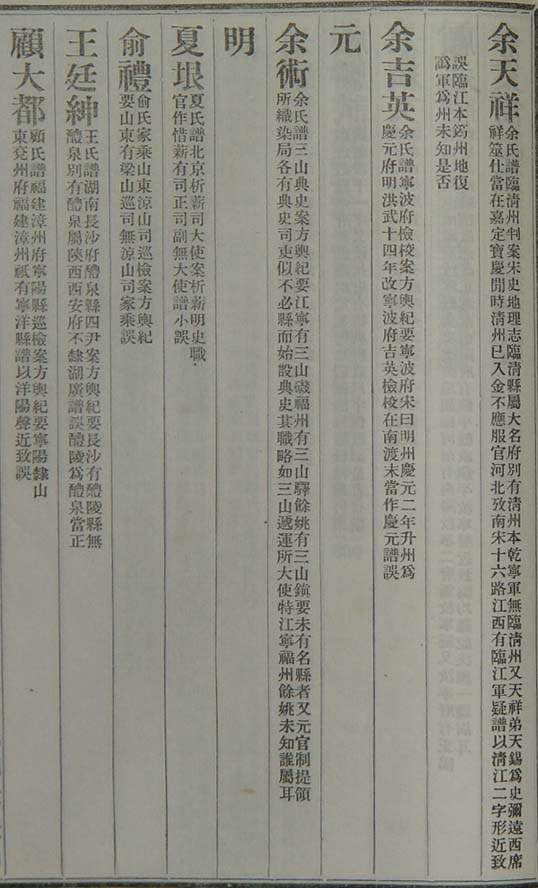 余天祥余氏譜臨清州判案宋史地理志臨清縣屬大名府別有清州本乾寧軍無臨清州又天祥弟天錫爲史彌遠西席
祥筮仕當在嘉定寶慶間時清州已入金不應服官河北攷南宋十六路江西有臨江軍疑譜以清江二字形近致
誤臨江本筠州地復
譌軍爲州未知是否
余吉英余氏譜寧波府檢校案方輿紀要寧波府宋曰明州慶元二年升州爲
慶元府明洪武十四年改寧波府吉英檢校在南渡末當作慶元譜誤
元
余術余氏譜三山典史案方輿紀要江寧有三山磯福州有三山驛餘姚有三山鎮要未有名縣者又元官制提領
所織染局各有典史司吏似不必縣而始設典史其職略如三山遞運所大使特江寧福州餘姚未知誰屬耳
明
夏垠夏氏譜北京析薪司大使案析薪明史職
官作惜薪有司正司副無大使譜小誤
俞禮俞氏家乘山東涼山司巡檢案方輿紀
要山東有梁山巡司無涼山司家乘誤
王廷紳王氏譜湖南長沙府醴泉縣四尹案方輿紀要長沙有醴陵縣無
醴泉別有醴泉屬陝西西安府不隸湖廣譜誤醴陵爲醴泉當正
顧大都顧氏譜福建漳州府寧陽縣巡檢案方輿紀要寧陽隸山
東兗州府福建漳州祇有寧洋縣譜以洋陽聲近致誤